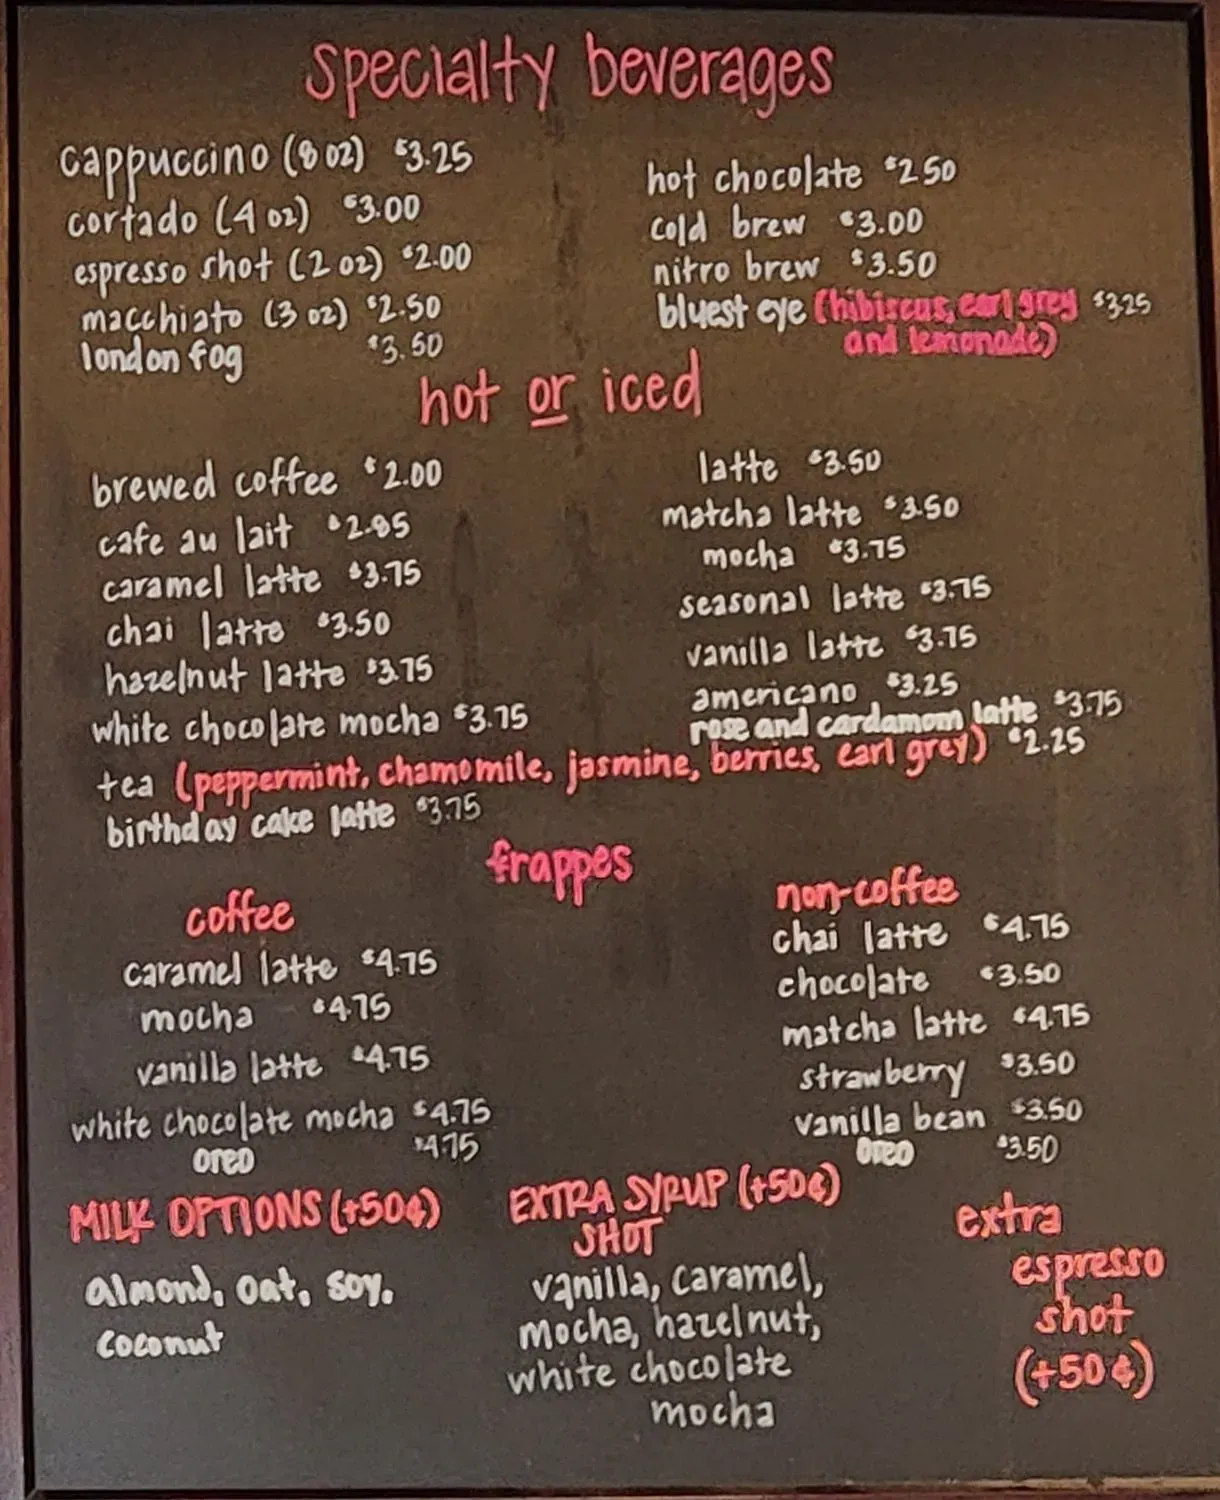 specialty beverages
cappuccino (8 oz) $3.25
cortado (4 oz) $3.00
espresso shot (2 oz) $2.00
macchiato (3 oz) $2.50
london fog $3.50
hot chocolate $2.50
cold brew $3.00
nitro brew $3.50
bluest eye (hibiscus, earl grey $3.25
and lemonade)
hot or iced
brewed coffee $2.00
cafe au lait $2.85
caramel latte $3.75
chai latte $3.50
hazelnut latte $3.75
white chocolate mocha $3.75
latte $3.50
matcha latte $3.50
mocha $3.75
seasonal latte $3.75
vanilla latte $3.75
americano $3.25
rose and cardamom latte $3.75
tea (peppermint, chamomile, jasmine, berries, earl grey) $2.25
birthday cake latte $3.75
frappes
coffee
caramel latte $4.75
mocha $4.75
vanilla latte $4.75
white chocolate mocha $4.75
oreo $4.75
non-coffee
chai latte $4.75
chocolate $3.50
matcha latte $4.75
strawberry $3.50
vanilla bean $3.50
oreo $3.50
MILK OPTIONS (+50¢)
almond, oat, soy,
coconut
EXTRA SYRUP (+50¢)
SHOT
vanilla, caramel,
mocha, hazelnut,
white chocolate
mocha
extra
espresso
shot
(+50¢)